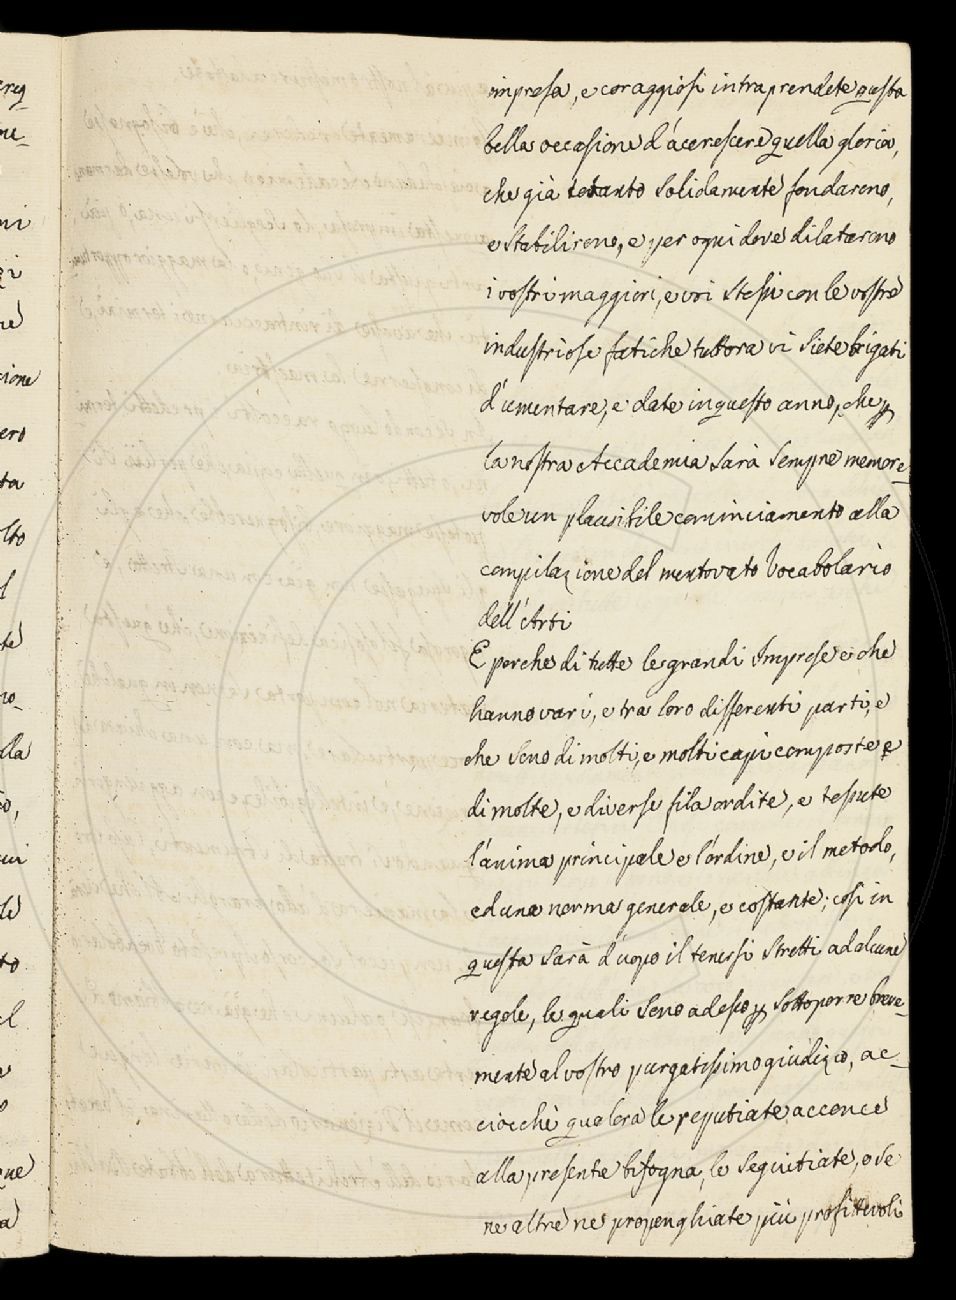 impresa, e coraggiosi intraprendete questa
bella occasione d'acerescere quella gloria,
che già tanto solidamente fondarono,
e stabilirono, e per ogni dove dilatarono
i vostri maggiori, e voi stessi con le vostre
industriose fatiche tuttora vi siete brigati
d'umentare, e date in questo anno, che
la nostra Accademia sarà sempre memore-
vole un plausibile cominciamento alla
compilazione del mentovato Vocabolario
dell'Arti
E perche di tutte le grandi Imprese e che
hanno vari, e tra loro differenti parti, e
che sono di molti, e molti capi composte e
di molte, e diverse fila ordite, e tessute
l'anima principale e l'ordine, e il metodo,
ed una norma generale, e costante; così in
questa sarà d'uopo il tenersi stretti ad alcune
regole, le quali sono adesso p sottoporre breve-
mente al vostro purgatissimo giudizio, ac-
ciocchè qualora le reputiate acconce
alla presente bisogna, le seguitiate, o se
ne altre ne propenghiate più profittevoli